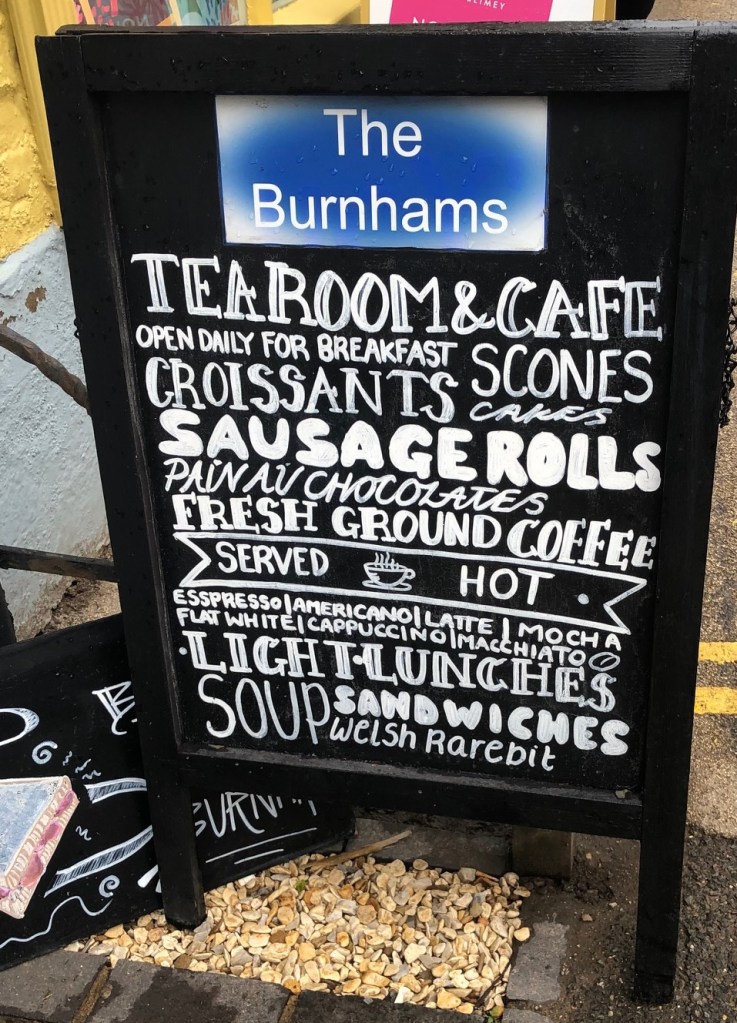 The
Burnhams
TEAROOM & CAFE
OPEN DAILY FOR BREAKFAST
SCONES
CROISSANTS
CAKES
SAUSAGE ROLLS
PAIN AU CHOCOLATES
FRESH GROUND COFFEE
SERVED HOT
ESSPRESSO | AMERICANO | LATTE | MOCHA
FLAT WHITE | CAPPUCCINO | MACCHIATO
·LIGHT·LUNCHES
SOUP SANDWICHES
Welsh Rarebit